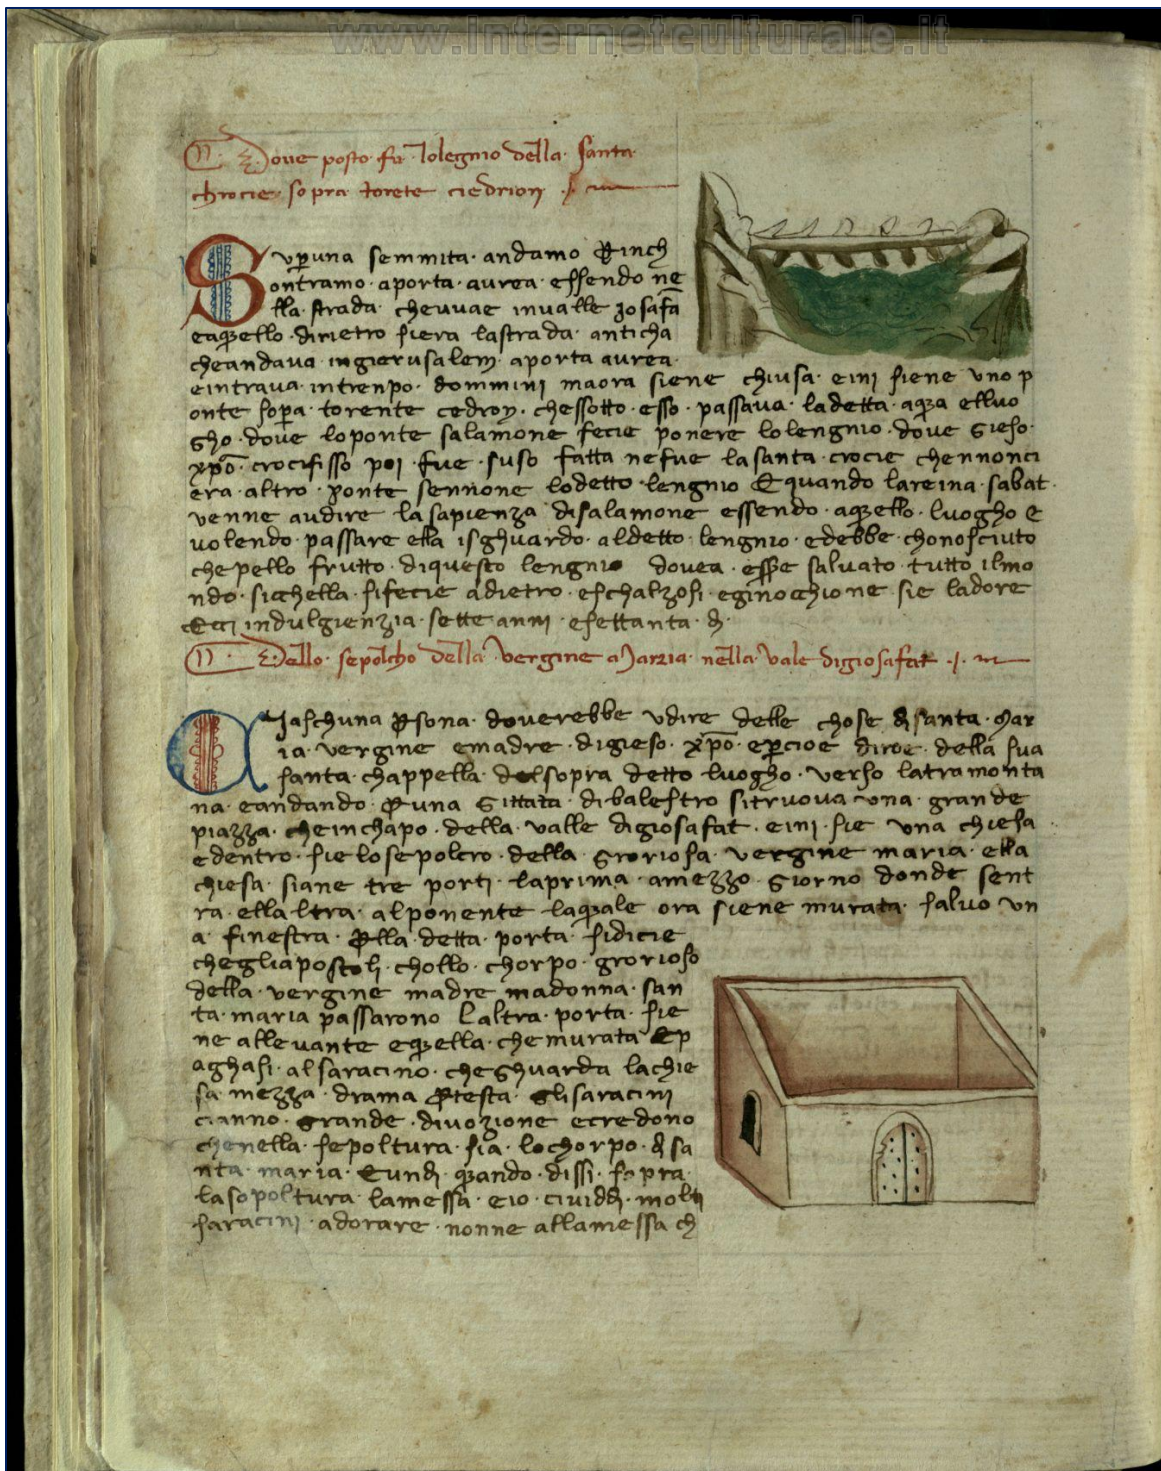 www.internetculturale.it
Dove posto fu lolegnio della santa
chrocie sopra torete ciedrion
Su per una semmita andamo Rinch
ontramo aporta aurea essendo ne
lla strada chevvae invalle Josafa
eaquello dirietro siera lastrada anticha
cheandava ingierusalem aporta aurea
eintrava intrenpo dommini maora siene chiusa eini siene uno p
onte sopra torente cedron chessotto esso passava ladetta aqua elluo
gho dove loponte salamone fecie ponere lolengnio dove Gieso
xpō crocifisso poi fue suso fatta nefue lasanta crocie chennonci
era altro ponte sennone lodetto lengnio Equando lareina sabat
venne audire lasapienza disalamone essendo aquello luogho e
volendo passare ella isghuardo aldetto lengnio edebbe chonosciuto
chepello frutto diquesto lengnio dovea esse salvato tutto ilmo
ndo sicchella sifecie adietro eschalzosi eginocchione sie ladore
Ecci indulgienzia sette anni esettanta d
Dello sepolcho della vergine Maria nella vale digiosafat
Ciaschuna psona doverebbe udire delle chose di santa Mar
ia vergine emadre digieso xpō epcioe diroe della sua
santa chappella delsopra detto luogho verso latramonta
na eandando p una Gittata dibalestro sitruova una grande
piazza cheinchapo della valle digiosafat eini sie una chiesa
edentro sie losepolcro della Groriosa vergine maria ella
chiesa siane tre porti laprima amezzo Giorno donde sent
ra ellaltra alponente laquale ora siene murata salvo un
a finestra plla detta porta sidicie
chegliapostoli chollo chorpo grorioso
della vergine madre madonna san
ta maria passarono Laltra porta sie
ne allevante equella chemurata Ep
aghasi alsaracino cheghuarda lachie
sa mezza drama ptesta glisaracini
cianno grande divozione ecredono
chenella sepoltura sia lochorpo di sa
nta maria Eundi quando dissi sopra
lasopoltura lamessa eio cividdi molti
saracini adorare nonne allamessa ch